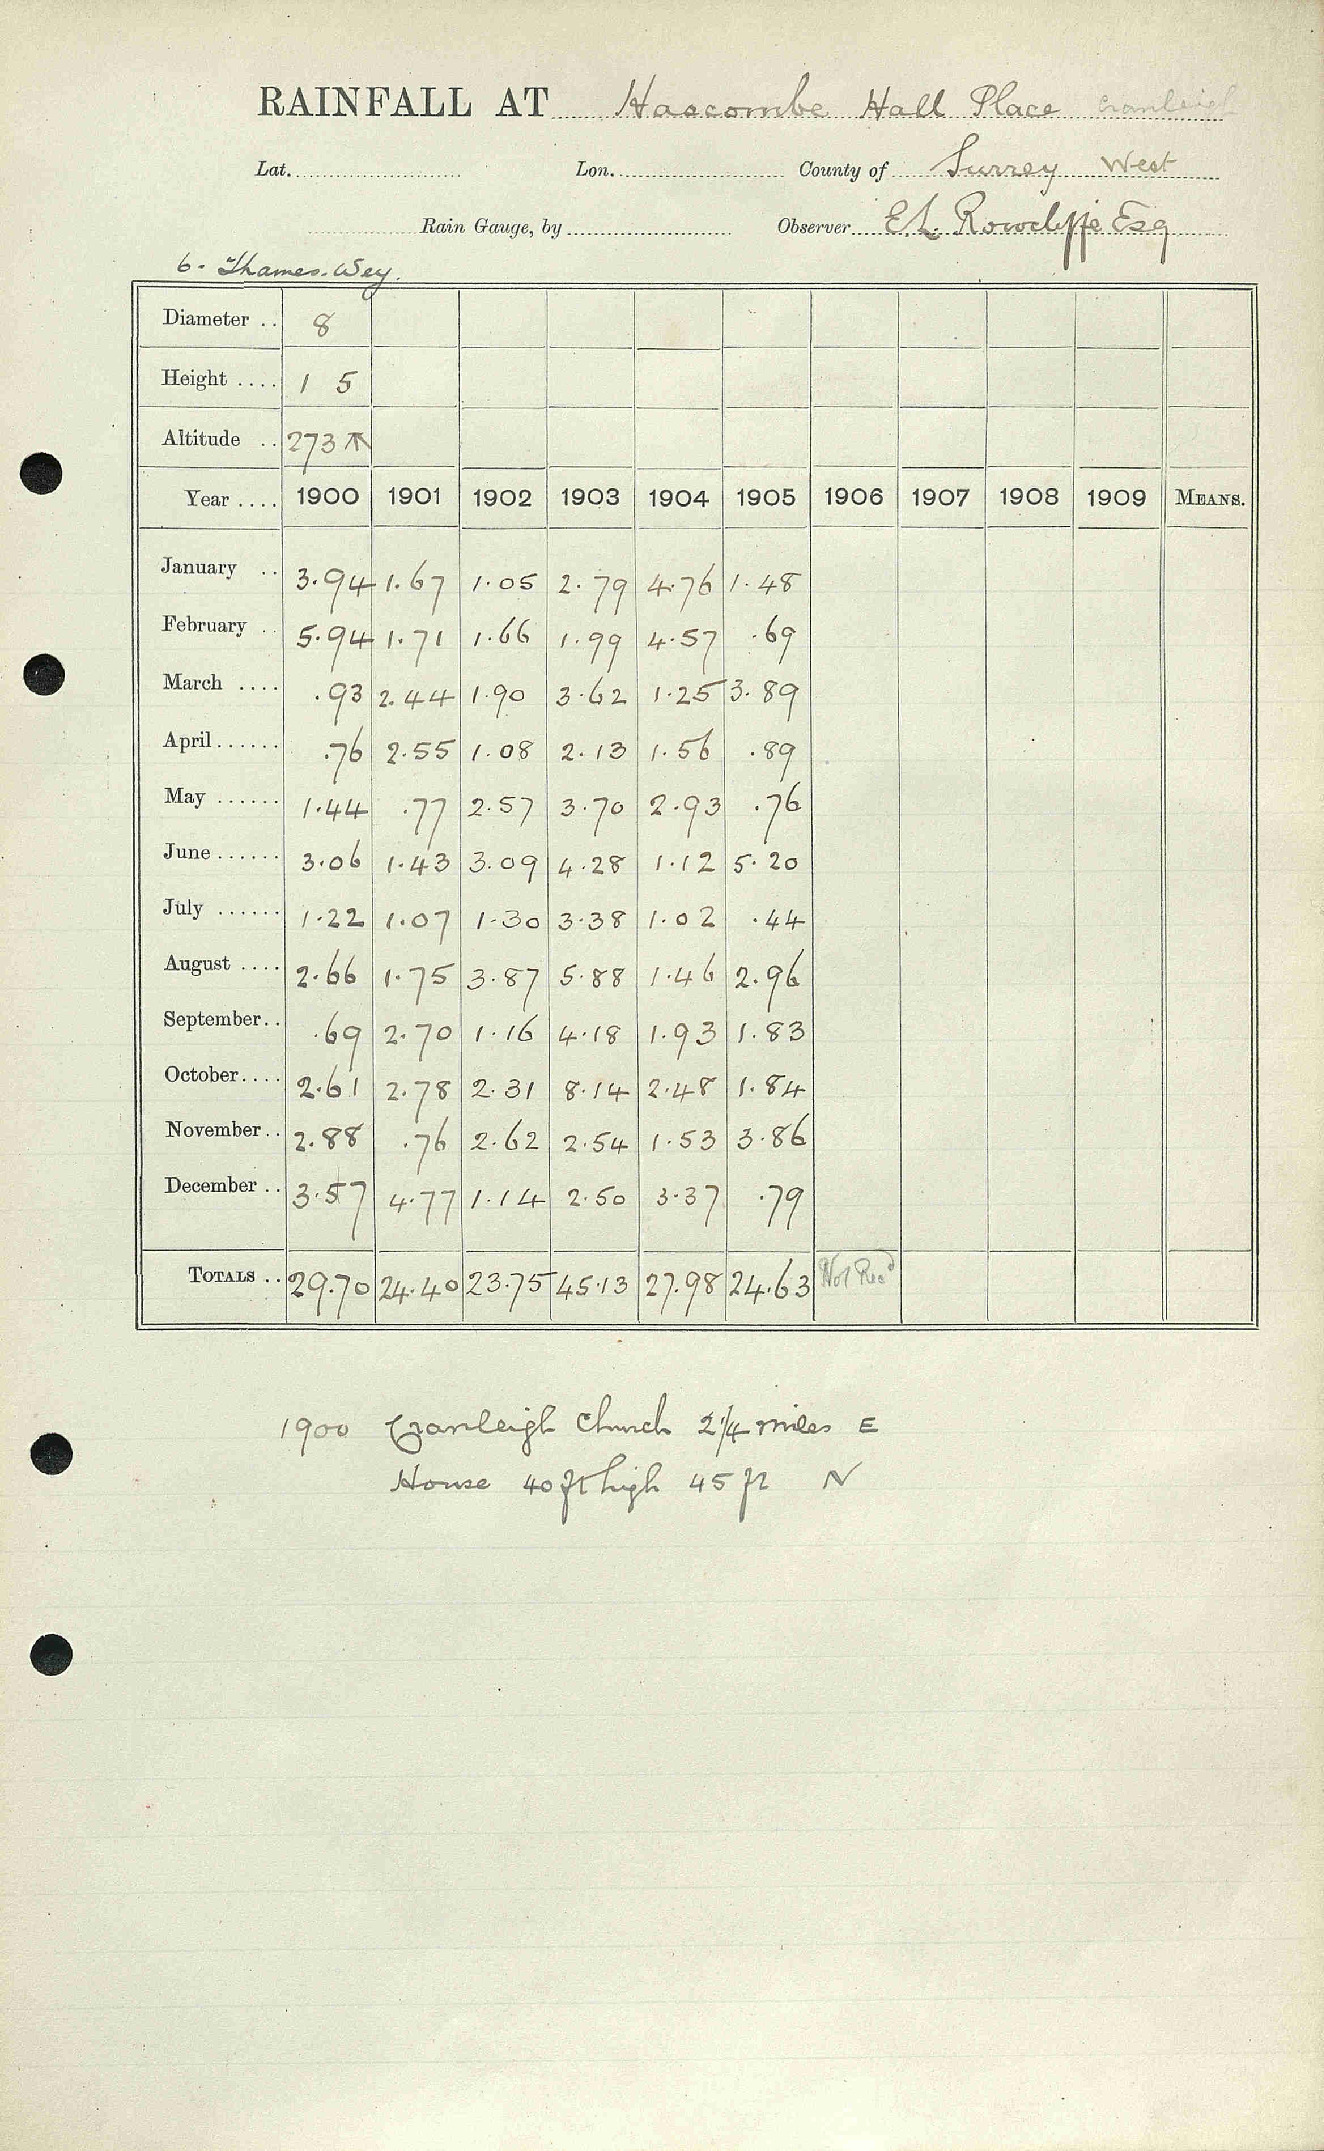 RAINFALL AT Hascombe Hall Place Cranleigh
Lat. Lon. County of Surrey West
Rain Gauge, by Observer E.L. Rowcliffe Esq
6. Thames. Wey.
Diameter .. 8
Height .... 1 5
Altitude .. 273
Year .... 1900 1901 1902 1903 1904 1905 1906 1907 1908 1909 MEANS.
January .. 3.94 1.67 1.05 2.79 4.76 1.48
February .. 5.94 1.71 1.66 1.99 4.57 .69
March .... .93 2.44 1.90 3.62 1.25 3.89
April...... .76 2.55 1.08 2.13 1.56 .89
May ...... 1.44 .77 2.57 3.70 2.93 .76
June...... 3.06 1.43 3.09 4.28 1.12 5.20
July ...... 1.22 1.07 1.30 3.38 1.02 .44
August .... 2.66 1.75 3.87 5.88 1.46 2.96
September.. .69 2.70 1.16 4.18 1.93 1.83
October.... 2.61 2.78 2.31 8.14 2.48 1.84
November.. 2.88 .76 2.62 2.54 1.53 3.86
December .. 3.57 4.77 1.14 2.50 3.37 .79
TOTALS .. 29.70 24.40 23.75 45.13 27.98 24.63 Not Recd
1900 Cranleigh Church 2 1/4 miles E
House 40 ft high 45 ft N